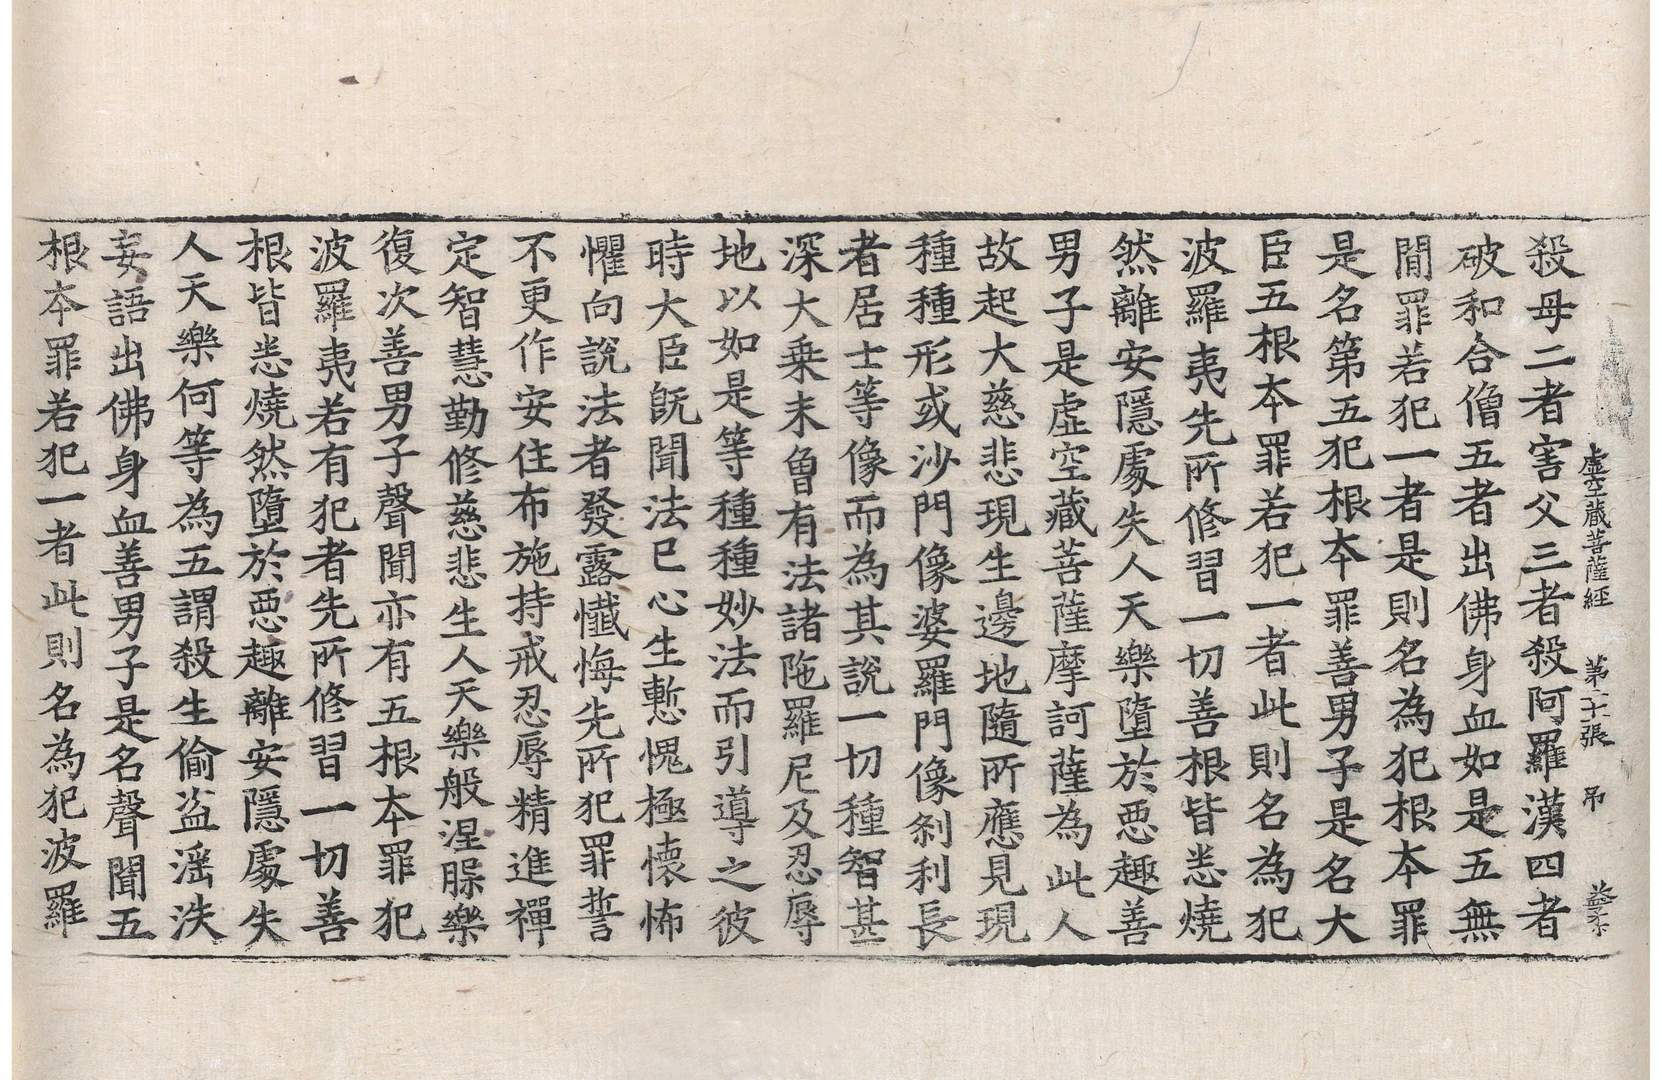 虛空藏菩薩經 第二十張 吊 益予
殺母二者害父三者殺阿羅漢四者
破和合僧五者出佛身血如是五無
閒罪若犯一者是則名為犯根本罪
是名第五犯根本罪善男子是名大
臣五根本罪若犯一者此則名為犯
波羅夷先所修習一切善根皆悉燒
然離安隱處失人天樂墮於惡趣善
男子是虛空藏菩薩摩訶薩為此人
故起大慈悲現生邊地隨所應見現
種種形或沙門像婆羅門像剎利長
者居士等像而為其說一切種智甚
深大乗未曾有法諸陁羅尼及忍辱
地以如是等種種妙法而引導之彼
時大臣旣聞法已心生慙愧極懷怖
懼向說法者發露懺悔先所犯罪誓
不更作安住布施持戒忍辱精進禪
定智慧勤修慈悲生人天樂般涅槃樂
復次善男子聲聞亦有五根本罪犯
波羅夷若有犯者先所修習一切善
根皆悉燒然墮於惡趣離安隱處失
人天樂何等為五謂殺生偷盜婬泆
妄語出佛身血善男子是名聲聞五
根本罪若犯一者此則名為犯波羅